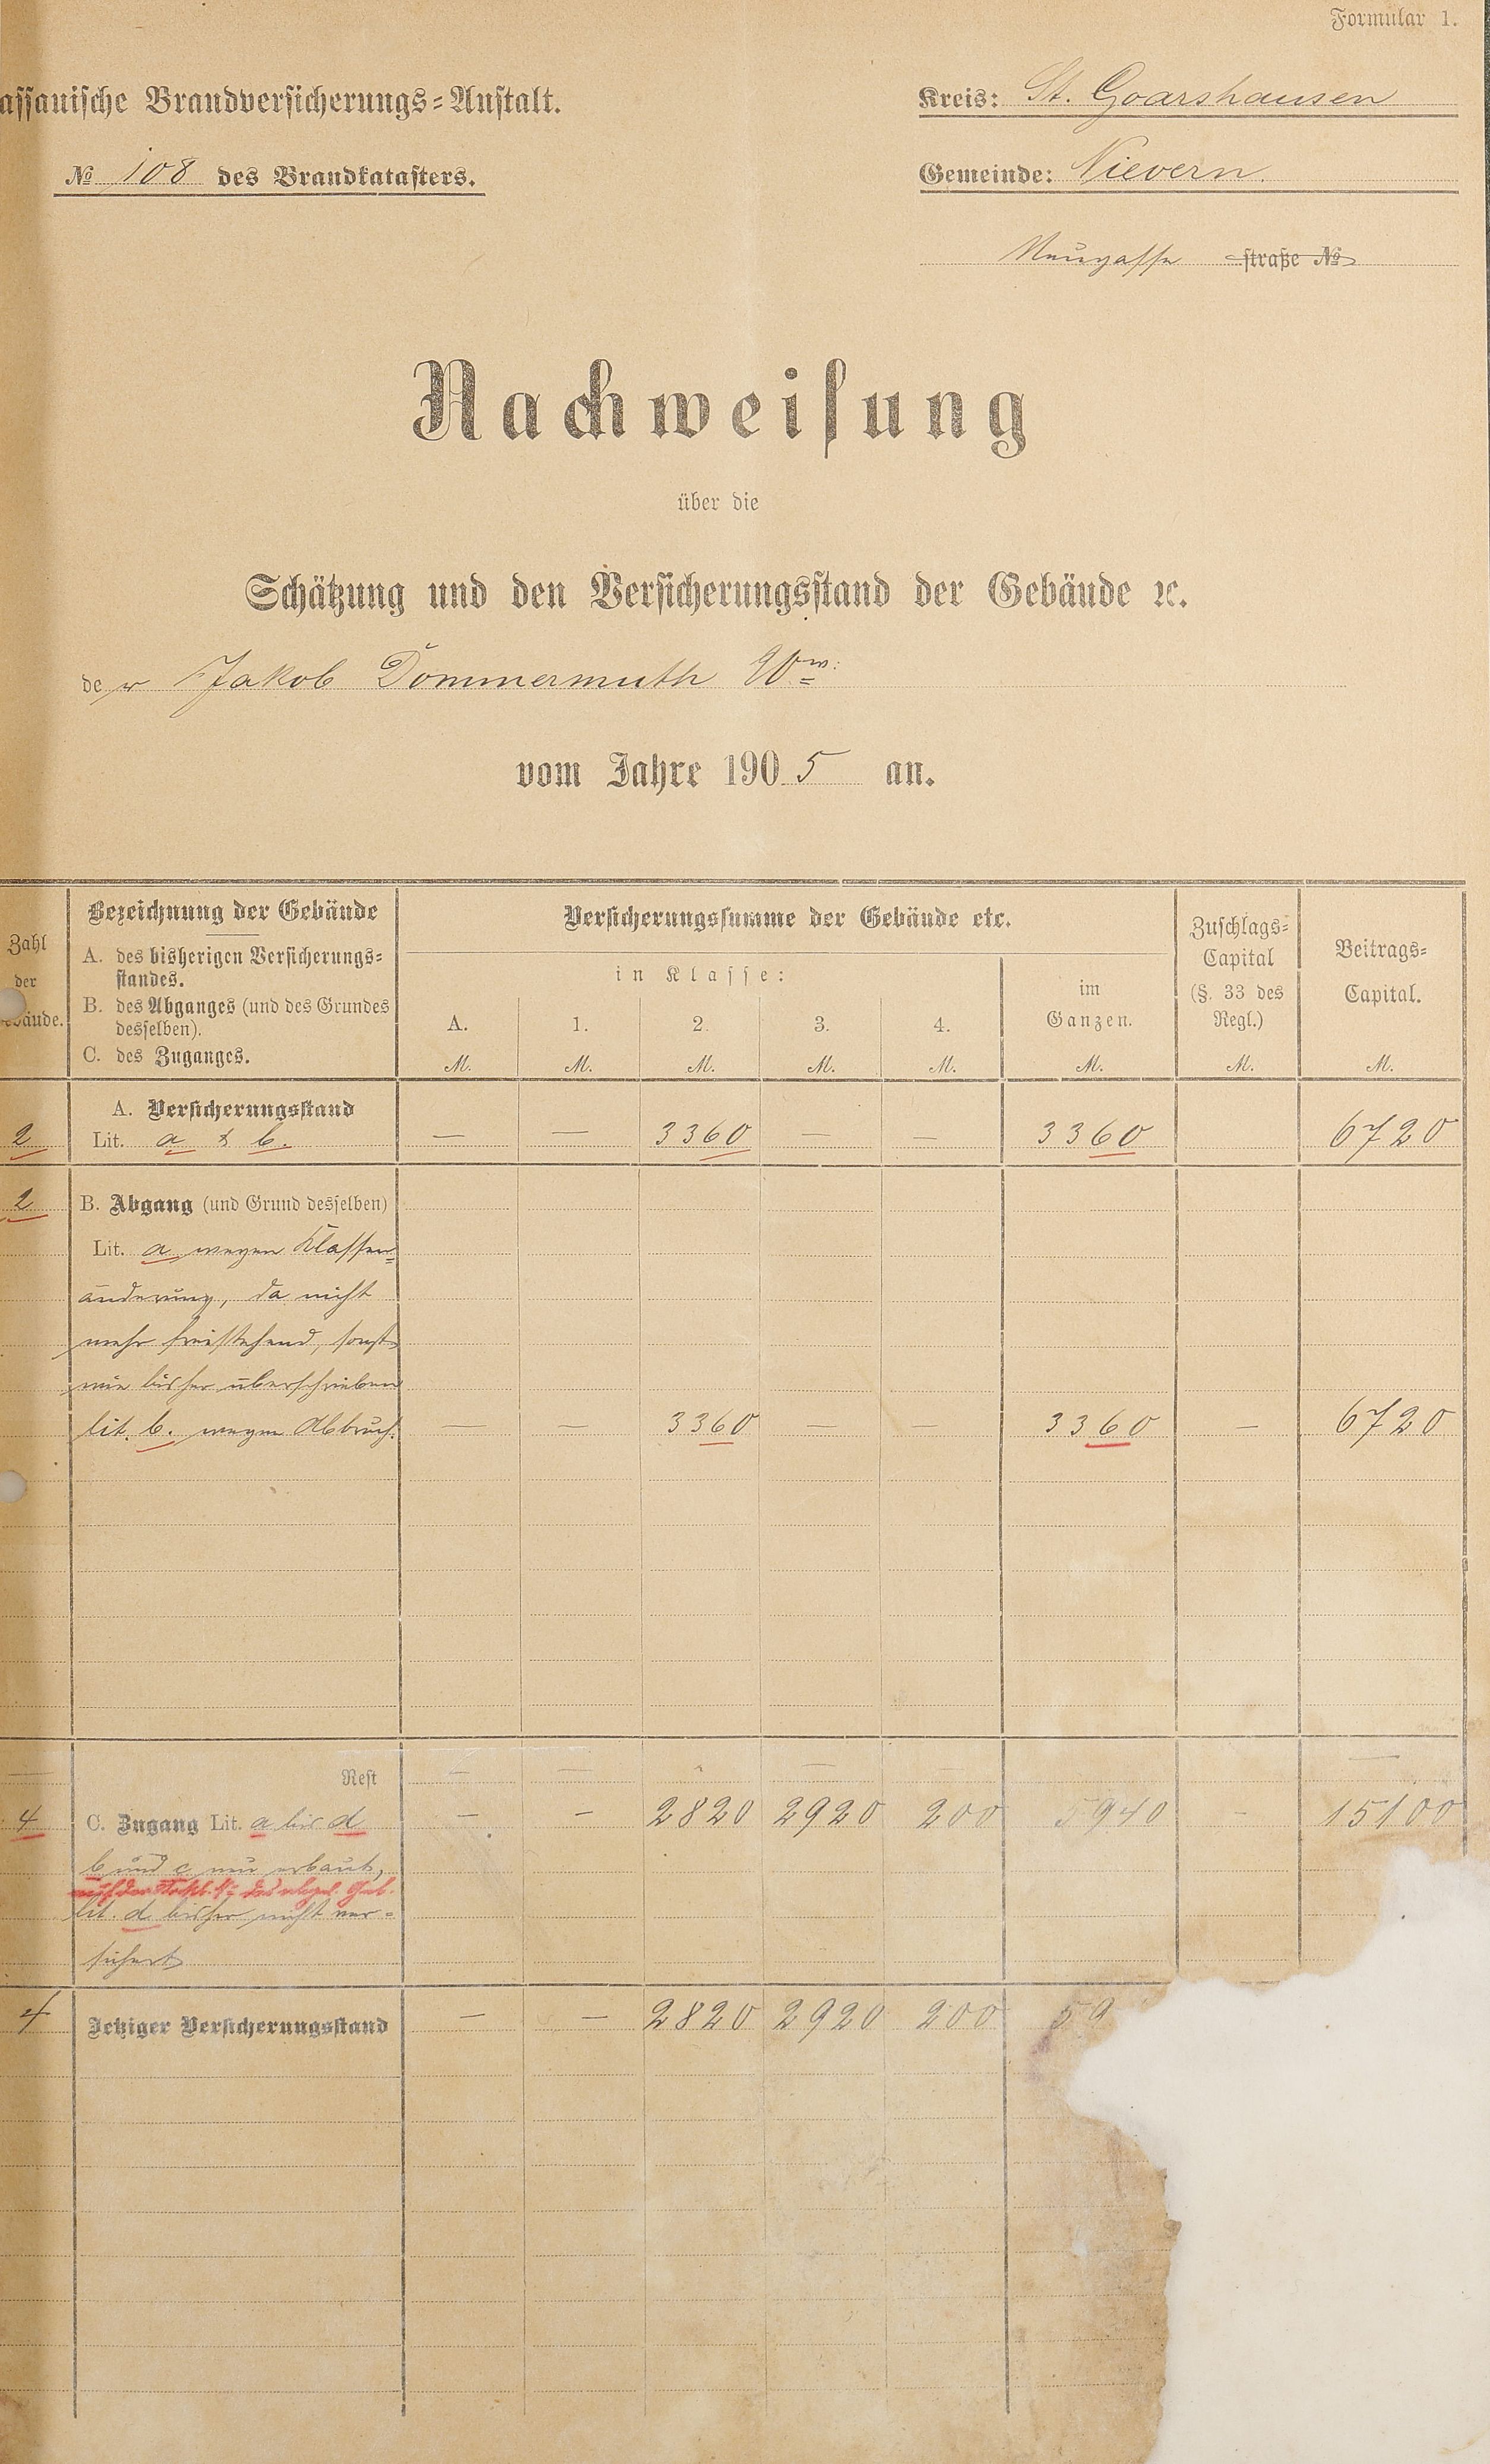 Formular 1.
assauische Brandversicherungs=Anstalt.
Kreis: St. Goarshausen
№ 108 des Brandkatasters.
Gemeinde: Nievern.
Neugasse straße №
Nachweisung
über die
Schätzung und den Versicherungsstand der Gebäude ꝛc.
der Jakob Dommermuth Ww:
vom Jahre 1905 an.
Zahl
der
bäude.
Bezeichnung der Gebäude
A. des bisherigen Versicherungs=
standes.
B. des Abganges (und des Grundes
desselben).
C. des Zuganges.
Versicherungssumme der Gebäude etc.
in Klasse:
A. 1. 2. 3. 4.
M. M. M. M. M.
im
Ganzen.
M.
Zuschlags=
Capital
(§. 33 des
Regl.)
M.
Beitrags=
Capital.
M.
A. Versicherungsstand
2 Lit. a & b. — — 3360 — — 3360 6720
2 B. Abgang (und Grund desselben)
Lit. a wegen Klassen=
änderung, da nicht
mehr freistehend, sonst
wie bisher überschrieben
lit. b. wegen Abbruch. — — 3360 — — 3360 — 6720
— Rest — — — — — — —
4 C. Zugang Lit. a bis d — — 2820 2920 200 5940 — 15100
b und c neu erbaut,
auf der des Geb.
lit. d bisher nicht ver=
sichert
4 Jetziger Versicherungsstand — — 2820 2920 200 59